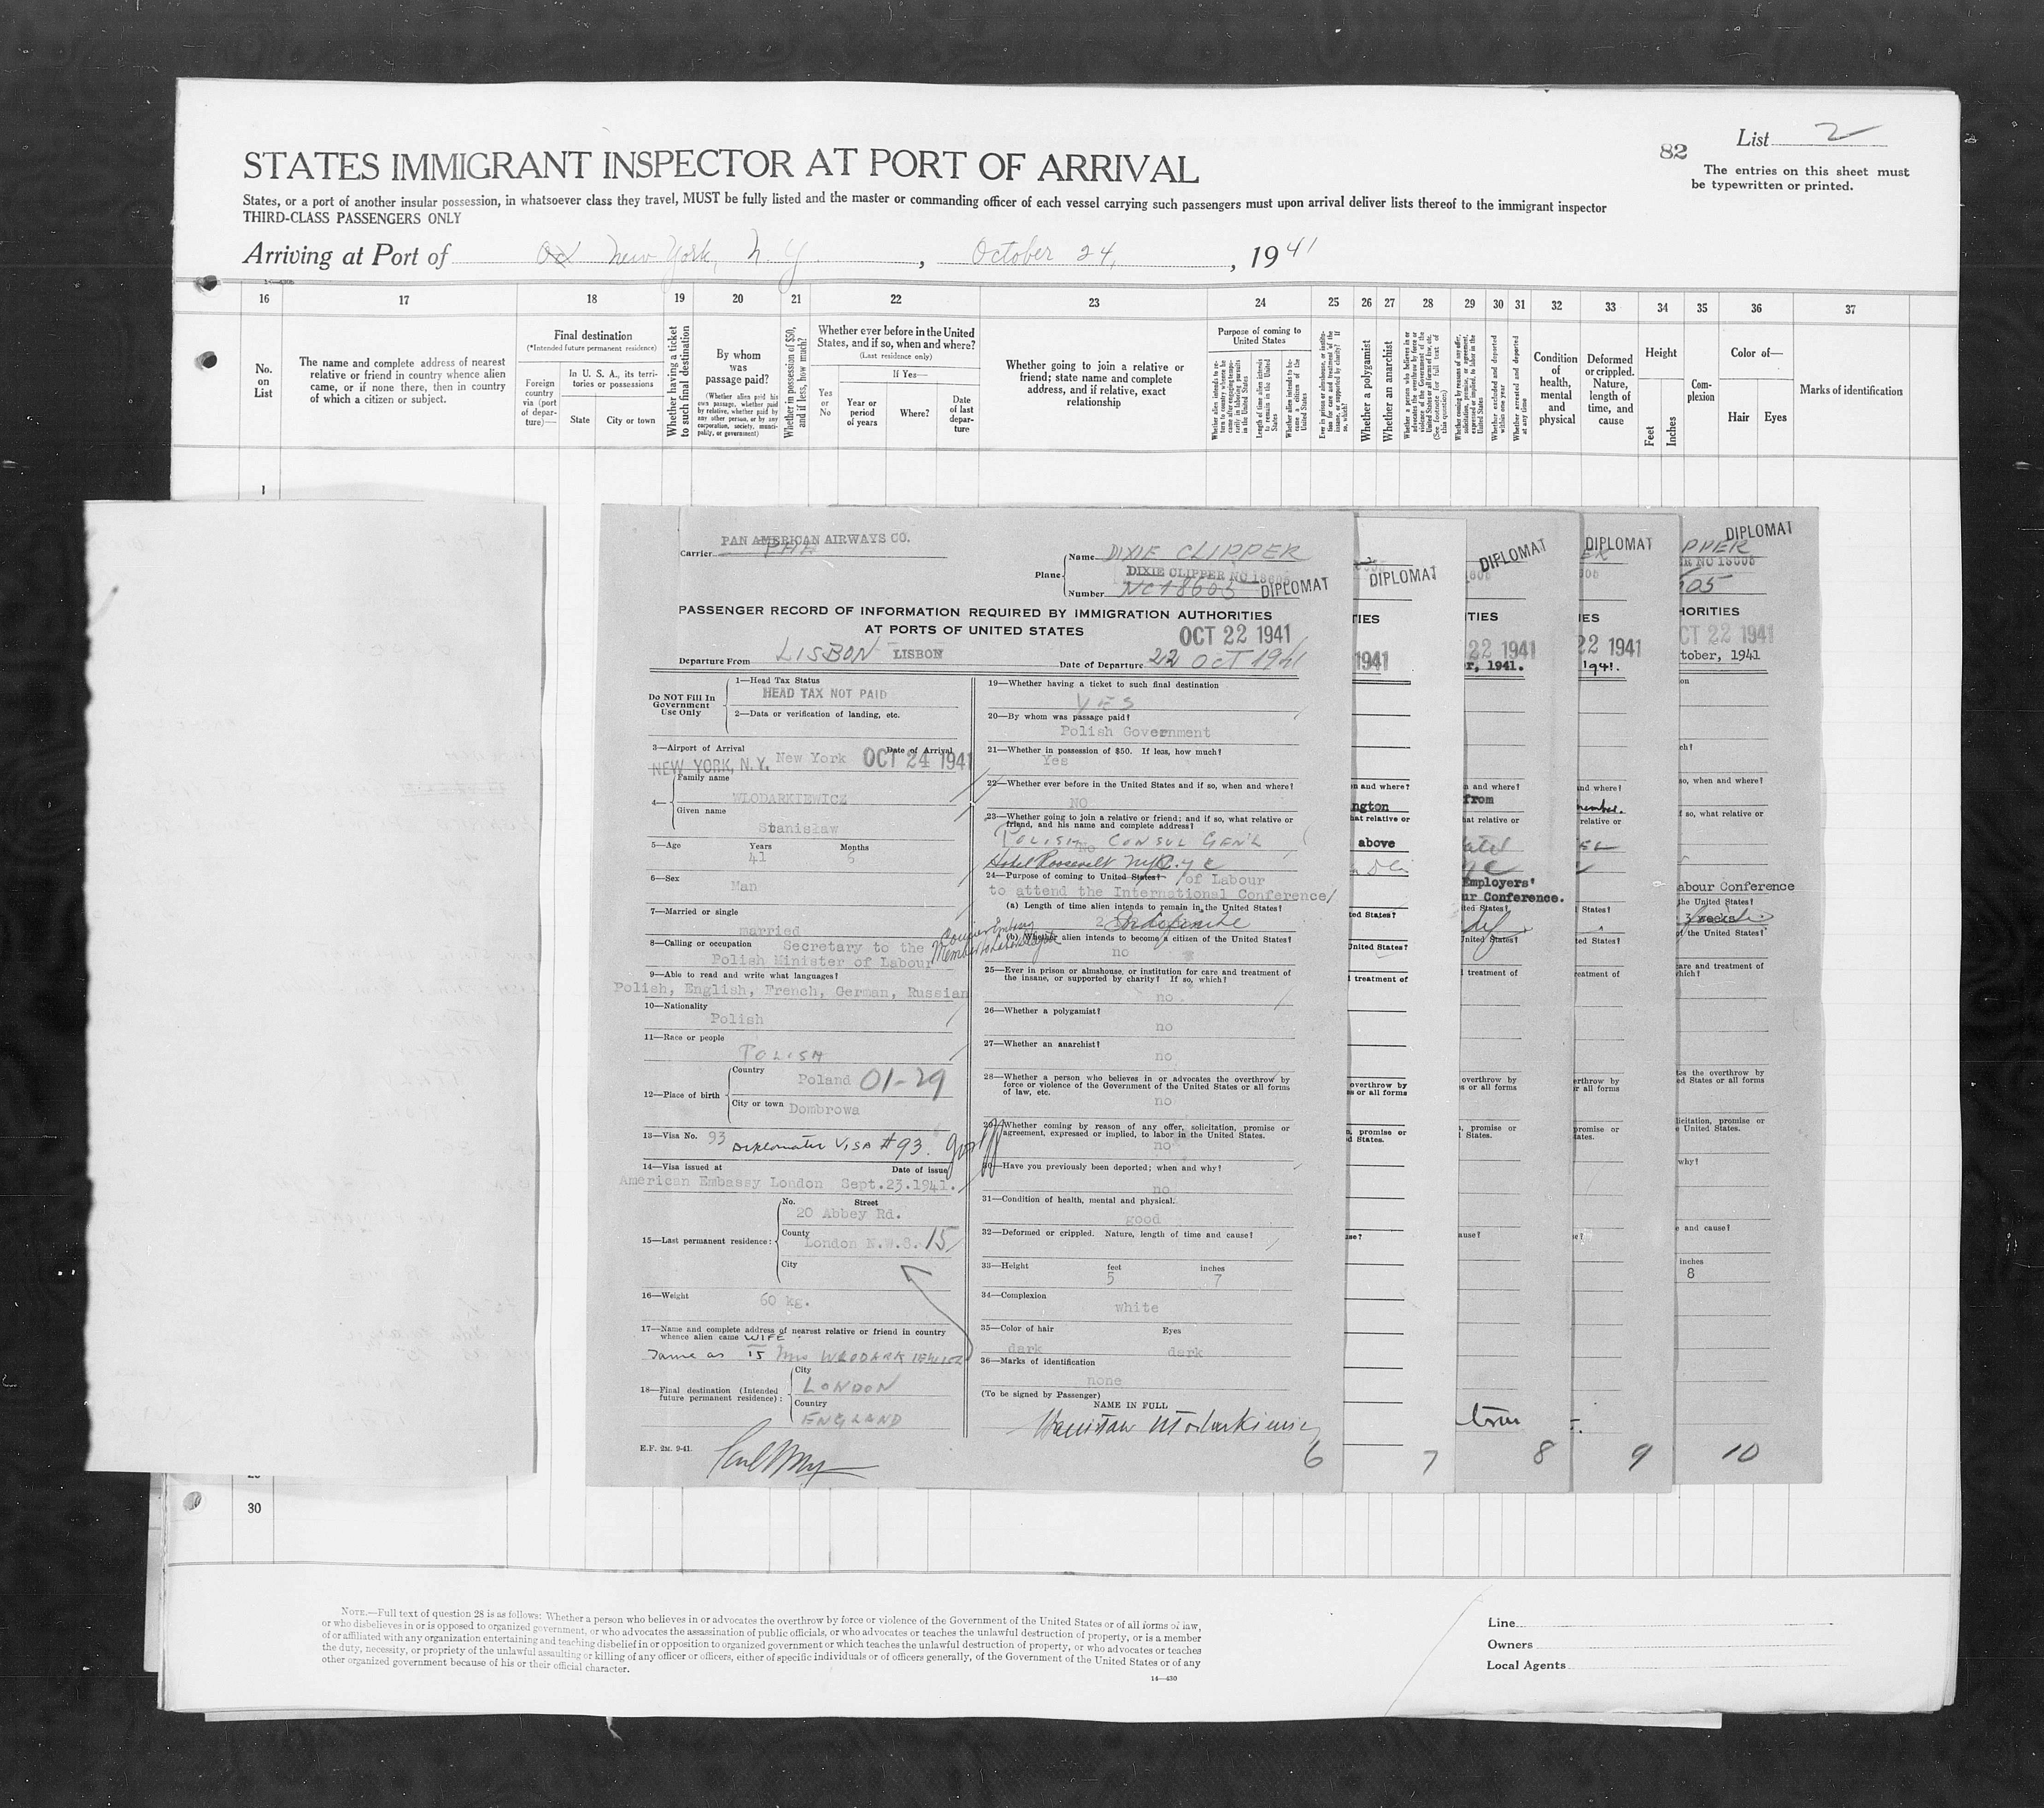 List 2
82
The entries on this sheet must
be typewritten or printed.
STATES IMMIGRANT INSPECTOR AT PORT OF ARRIVAL
States, or a port of another insular possession, in whatsoever class they travel, MUST be fully listed and the master or commanding officer of each vessel carrying such passengers must upon arrival deliver lists thereof to the immigrant inspector
THIRD-CLASS PASSENGERS ONLY
Arriving at Port of New York, N. Y. , October 24, , 1941
16 17 18 19 20 21 22 23 24 25 26 27 28 29 30 31 32 33 34 35 36 37
No. on List
The name and complete address of nearest
relative or friend in country whence alien
came, or if none there, then in country
of which a citizen or subject.
Final destination
(*Intended future permanent residence)
Foreign country via (port of departure)—
In U. S. A., its territories or possessions
State
City or town
Whether having a ticket to such final destination
By whom was passage paid?
(Whether alien paid his own passage, whether paid by relative, whether paid by any other person, or by any corporation, society, municipality, or government)
Whether in possession of $50, and if less, how much?
Whether ever before in the United
States, and if so, when and where?
(Last residence only)
Yes or No
If Yes—
Year or period of years
Where?
Date of last departure
Whether going to join a relative or
friend; state name and complete
address, and if relative, exact
relationship
Purpose of coming to United States
Length of time alien intends to remain in the United States
Whether alien intends to become a citizen of the United States
Whether a polygamist
Whether an anarchist
Whether excluded and deported within one year
Whether arrested and deported at any time
Condition of health, mental and physical
Deformed or crippled. Nature, length of time, and cause
Height
Feet
Inches
Complexion
Color of—
Hair
Eyes
Marks of identification
1
PAN AMERICAN AIRWAYS CO.
Carrier PAA
Plane
Name DIXIE CLIPPER
DIXIE CLIPPER NC 18605
Number NC18605
DIPLOMAT
PASSENGER RECORD OF INFORMATION REQUIRED BY IMMIGRATION AUTHORITIES
AT PORTS OF UNITED STATES
OCT 22 1941
Departure From LISBON LISBON
Date of Departure 22 OCT 1941
Do NOT Fill In
Government
Use Only
1—Head Tax Status
HEAD TAX NOT PAID
2—Data or verification of landing, etc.
3—Airport of Arrival
Date of Arrival
NEW YORK, N.Y. New York OCT 24 1941
4—
Family name
WLODARKIEWICZ
Given name
Stanisław
5—Age Years Months
41 6
6—Sex
Man
7—Married or single
married
8—Calling or occupation Secretary to the
Polish Minister of Labour
9—Able to read and write what languages?
Polish, English, French, German, Russian
10—Nationality
Polish
11—Race or people
POLISH
12—Place of birth
Country
Poland 01-29
City or town Dombrowa
13—Visa No. 93 Diplomatic VISA #93.
14—Visa issued at Date of issue
American Embassy London Sept.23.1941.
15—Last permanent residence:
No. Street
20 Abbey Rd.
County
London N.W.8. 15
City
16—Weight 60 kg.
17—Name and complete address of nearest relative or friend in country
whence alien came WIFE
Same as 15 Mrs WLODARKIEWICZ
18—Final destination (Intended
future permanent residence):
City
LONDON
Country
ENGLAND
E.F. 2M. 9-41.
19—Whether having a ticket to such final destination
YES
20—By whom was passage paid?
Polish Government
21—Whether in possession of $50. If less, how much?
Yes
22—Whether ever before in the United States and if so, when and where?
NO
23—Whether going to join a relative or friend; and if so, what relative or
friend, and his name and complete address?
No
POLISH CONSUL GEN'L
Hotel Roosevelt NYC
24—Purpose of coming to United States? of Labour
to attend the International Conference
(a) Length of time alien intends to remain in the United States?
2 Indefinite
(b) Whether alien intends to become a citizen of the United States?
no
25—Ever in prison or almshouse, or institution for care and treatment of
the insane, or supported by charity? If so, which?
no
26—Whether a polygamist?
no
27—Whether an anarchist?
no
28—Whether a person who believes in or advocates the overthrow by
force or violence of the Government of the United States or all forms
of law, etc.
no
29—Whether coming by reason of any offer, solicitation, promise or
agreement, expressed or implied, to labor in the United States.
no
30—Have you previously been deported; when and why?
no
31—Condition of health, mental and physical.
good
32—Deformed or crippled. Nature, length of time and cause?
33—Height feet inches
5 7
34—Complexion
white
35—Color of hair Eyes
dark dark
36—Marks of identification
none
(To be signed by Passenger)
NAME IN FULL
Stanisław Włodarkiewicz
6
DIPLOMAT
TIES
1941
n and where?
ngton
hat relative or
above
ted States?
United States?
treatment of
overthrow by
s or all forms
promise or
d States.
use?
7
DIPLOMAT
TIES
22 1941
r, 1941.
n and where?
from
hat relative or
Employers'
ur Conference.
ited States?
United States?
treatment of
overthrow by
s or all forms
, promise or
States.
ause?
8
DIPLOMAT
IES
22 1941
1941.
nd where?
member.
relative or
States?
eatment of
erthrow by
r all forms
promise or
ates.
e?
9
DIPLOMAT
PPER
ER NC 18605
605
HORITIES
CT 22 1941
tober, 1941
on
ch?
so, when and where?
f so, what relative or
abour Conference
the United States?
3 weeks
of the United States?
care and treatment of
which?
es the overthrow by
ed States or all forms
licitation, promise or
e United States.
why?
e and cause?
inches
8
10
30
NOTE.—Full text of question 28 is as follows: Whether a person who believes in or advocates the overthrow by force or violence of the Government of the United States or of all forms of law,
or who disbelieves in or is opposed to organized government, or who advocates the assassination of public officials, or who advocates or teaches the unlawful destruction of property, or is a member
of or affiliated with any organization entertaining and teaching disbelief in or opposition to organized government or which teaches the unlawful destruction of property, or who advocates or teaches
the duty, necessity, or propriety of the unlawful assaulting or killing of any officer or officers, either of specific individuals or of officers generally, of the Government of the United States or of any
other organized government because of his or their official character.
14—430
Line
Owners
Local Agents